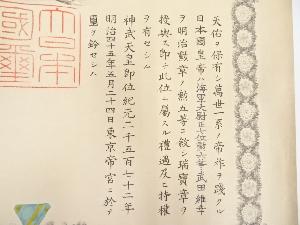 天佑ヲ保有シ萬世一系ノ帝祚ヲ踐タル
日本國皇帝ハ海軍大尉正七位勲六等武田維幸
ヲ明治勲章ノ勲五等ニ敘シ瑞寶章ヲ
授與ス即チ此位ニ屬スル禮遇及ヒ特權
ヲ有セシム
神武天皇即位紀元二千五百七十二年
明治四十五年五月二十四日東京帝宮ニ於テ
璽ヲ鈐セシム
大日本
國璽